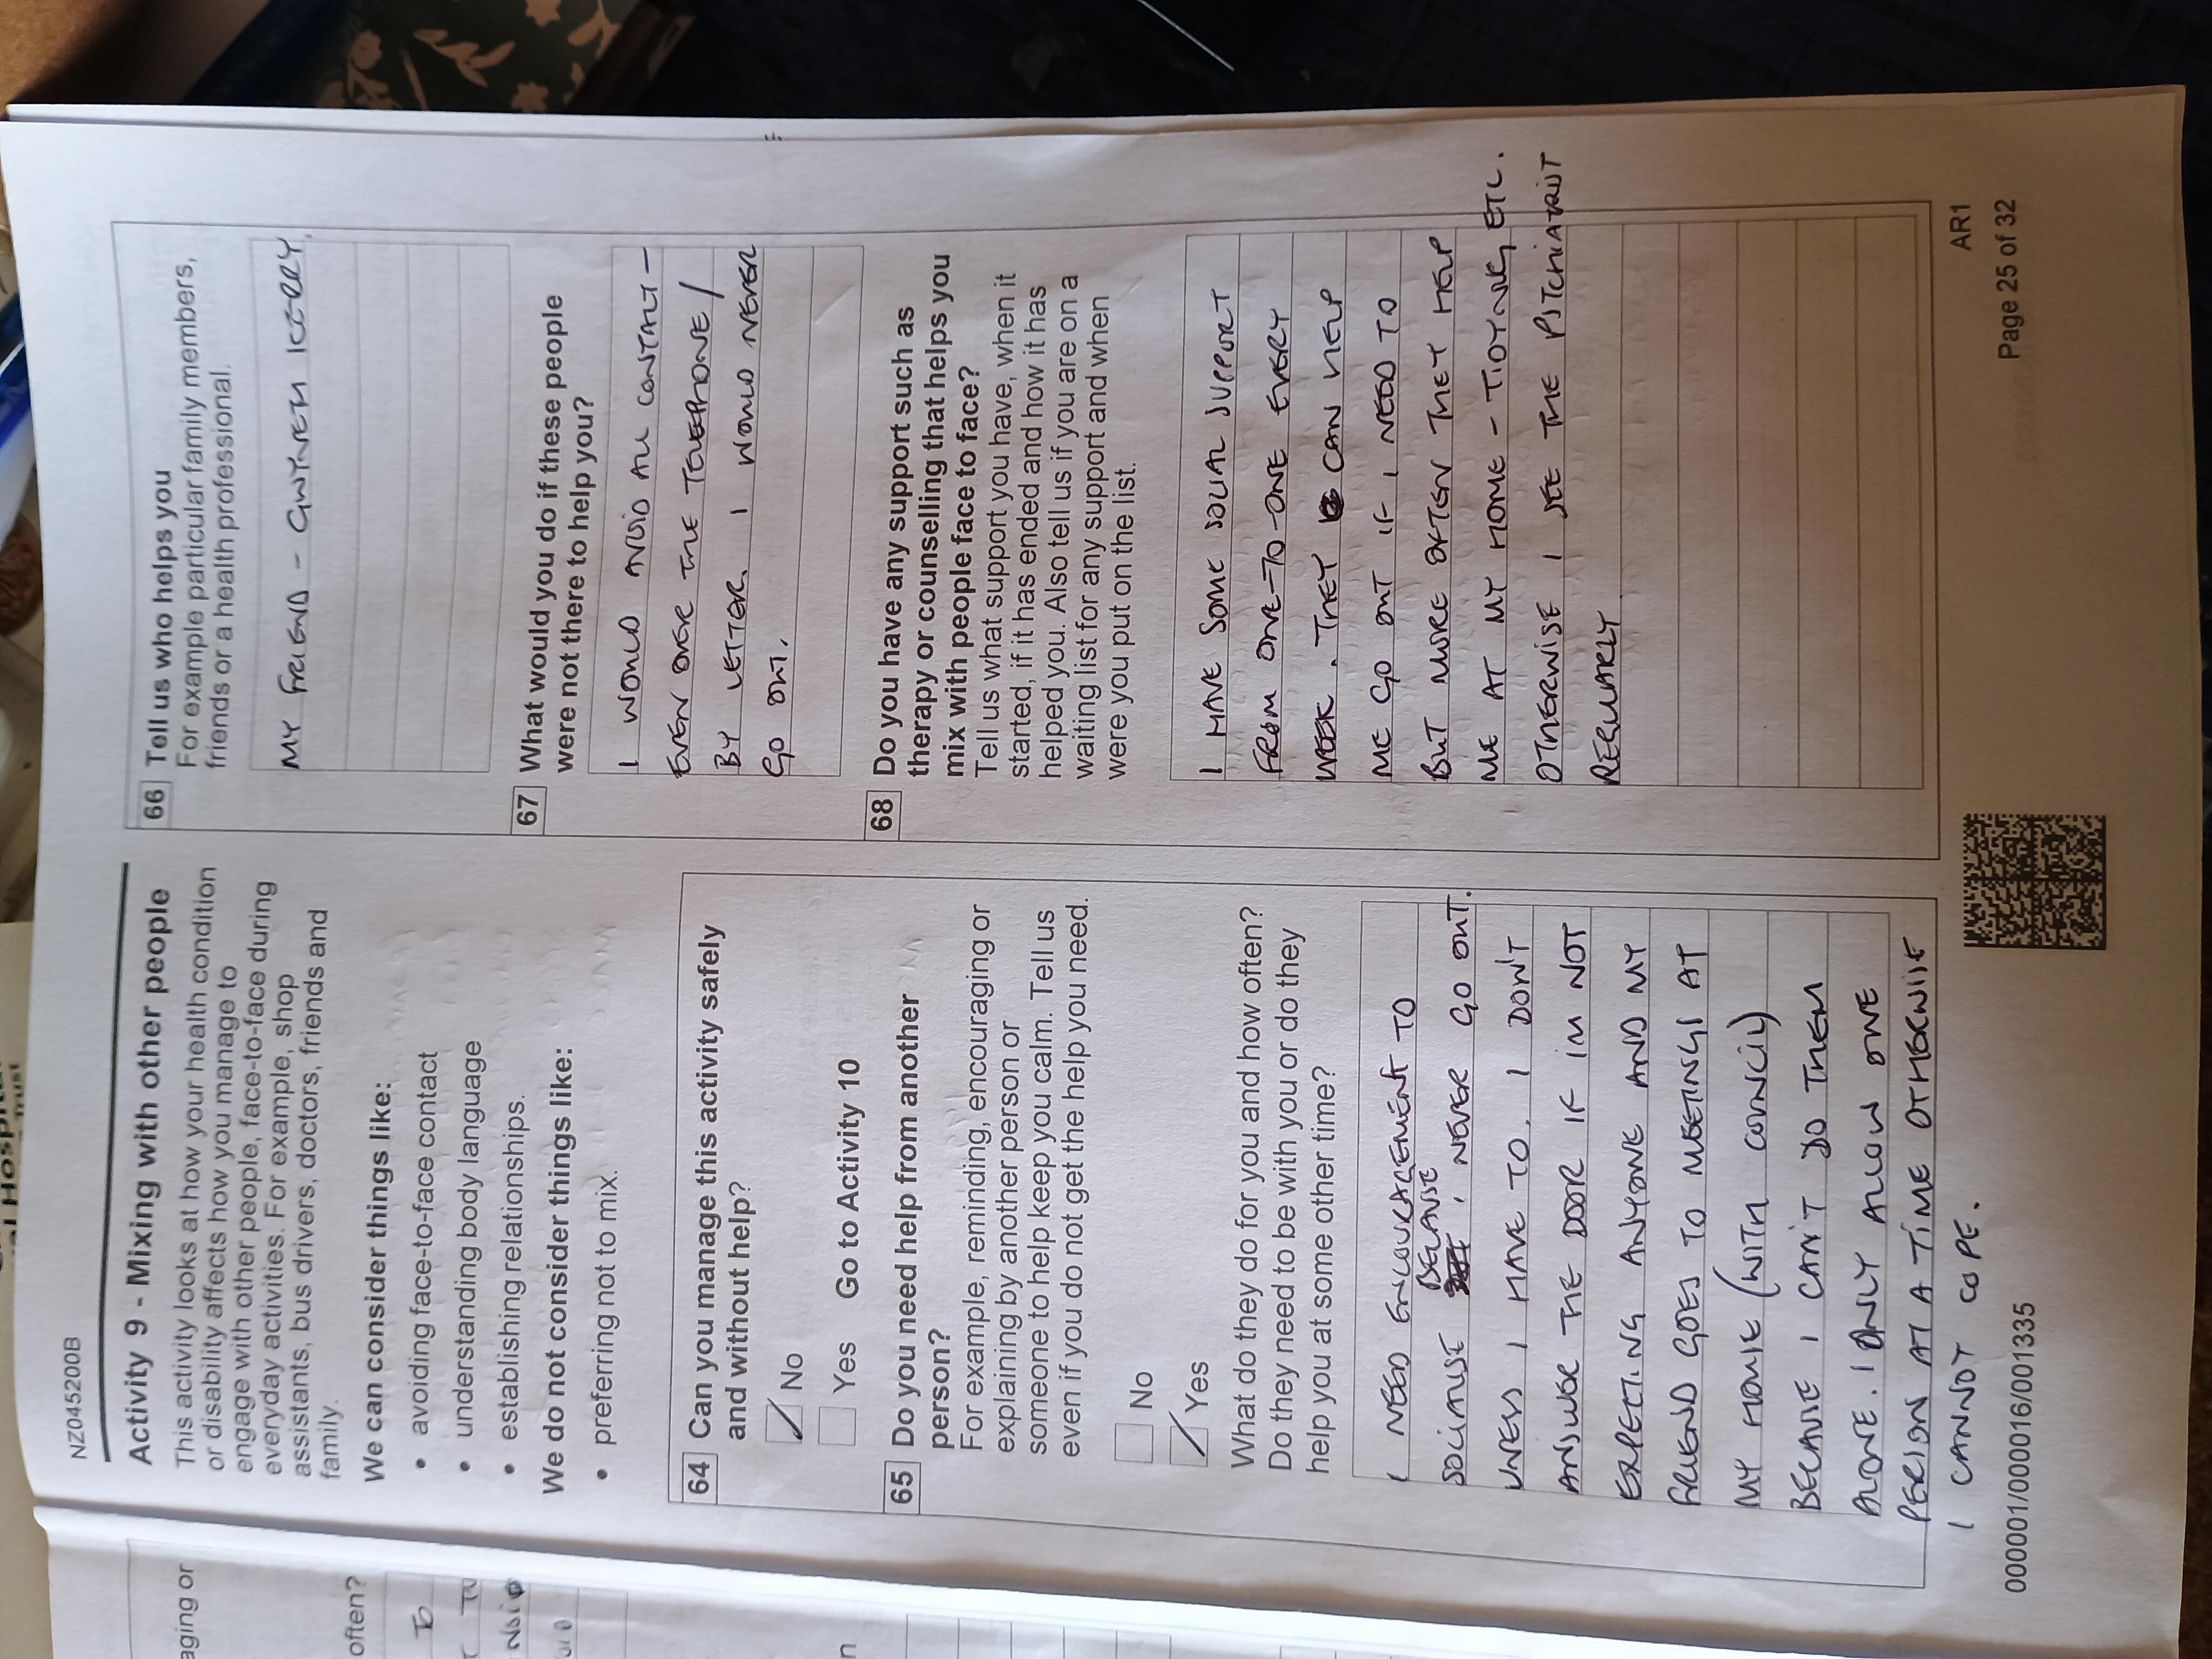 NZ045200B
Activity 9 - Mixing with other people
This activity looks at how your health condition
or disability affects how you manage to
engage with other people, face-to-face during
everyday activities. For example, shop
assistants, bus drivers, doctors, friends and
family.
We can consider things like:
• avoiding face-to-face contact
• understanding body language
• establishing relationships.
We do not consider things like:
• preferring not to mix.
64 Can you manage this activity safely
and without help?
No
Yes Go to Activity 10
65 Do you need help from another
person?
For example, reminding, encouraging or
explaining by another person or
someone to help keep you calm. Tell us
even if you do not get the help you need.
No
Yes
What do they do for you and how often?
Do they need to be with you or do they
help you at some other time?
I NEED ENCOURAGEMENT TO
SOCIALISE BECAUSE I NEVER GO OUT.
UNLESS I HAVE TO. I DON'T
ANSWER THE DOOR IF IM NOT
EXPECTING ANYONE AND MY
FRIEND GOES TO MEETINGS AT
MY HOME (WITH COUNCIL)
BECAUSE I CAN'T DO THEM
ALONE. I ONLY ALLOW ONE
PERSON AT A TIME OTHERWISE
I CANNOT COPE.
000001/000016/001335
66 Tell us who helps you
For example particular family members,
friends or a health professional.
MY FRIEND -
67 What would you do if these people
were not there to help you?
I WOULD AVOID ALL CONTACT -
EVEN OVER THE TELEPHONE /
BY LETTER. I WOULD NEVER
GO OUT.
68 Do you have any support such as
therapy or counselling that helps you
mix with people face to face?
Tell us what support you have, when it
started, if it has ended and how it has
helped you. Also tell us if you are on a
waiting list for any support and when
were you put on the list.
I HAVE SOME SOCIAL SUPPORT
FROM ONE-TO-ONE EVERY
WEEK. THEY CAN HELP
ME GO OUT IF I NEED TO
BUT MORE OFTEN THEY HELP
ME AT MY HOME - TIDYING ETC.
OTHERWISE I SEE THE PSYCHIATRIST
REGULARLY
AR1
Page 25 of 32
aging or
often?
TO